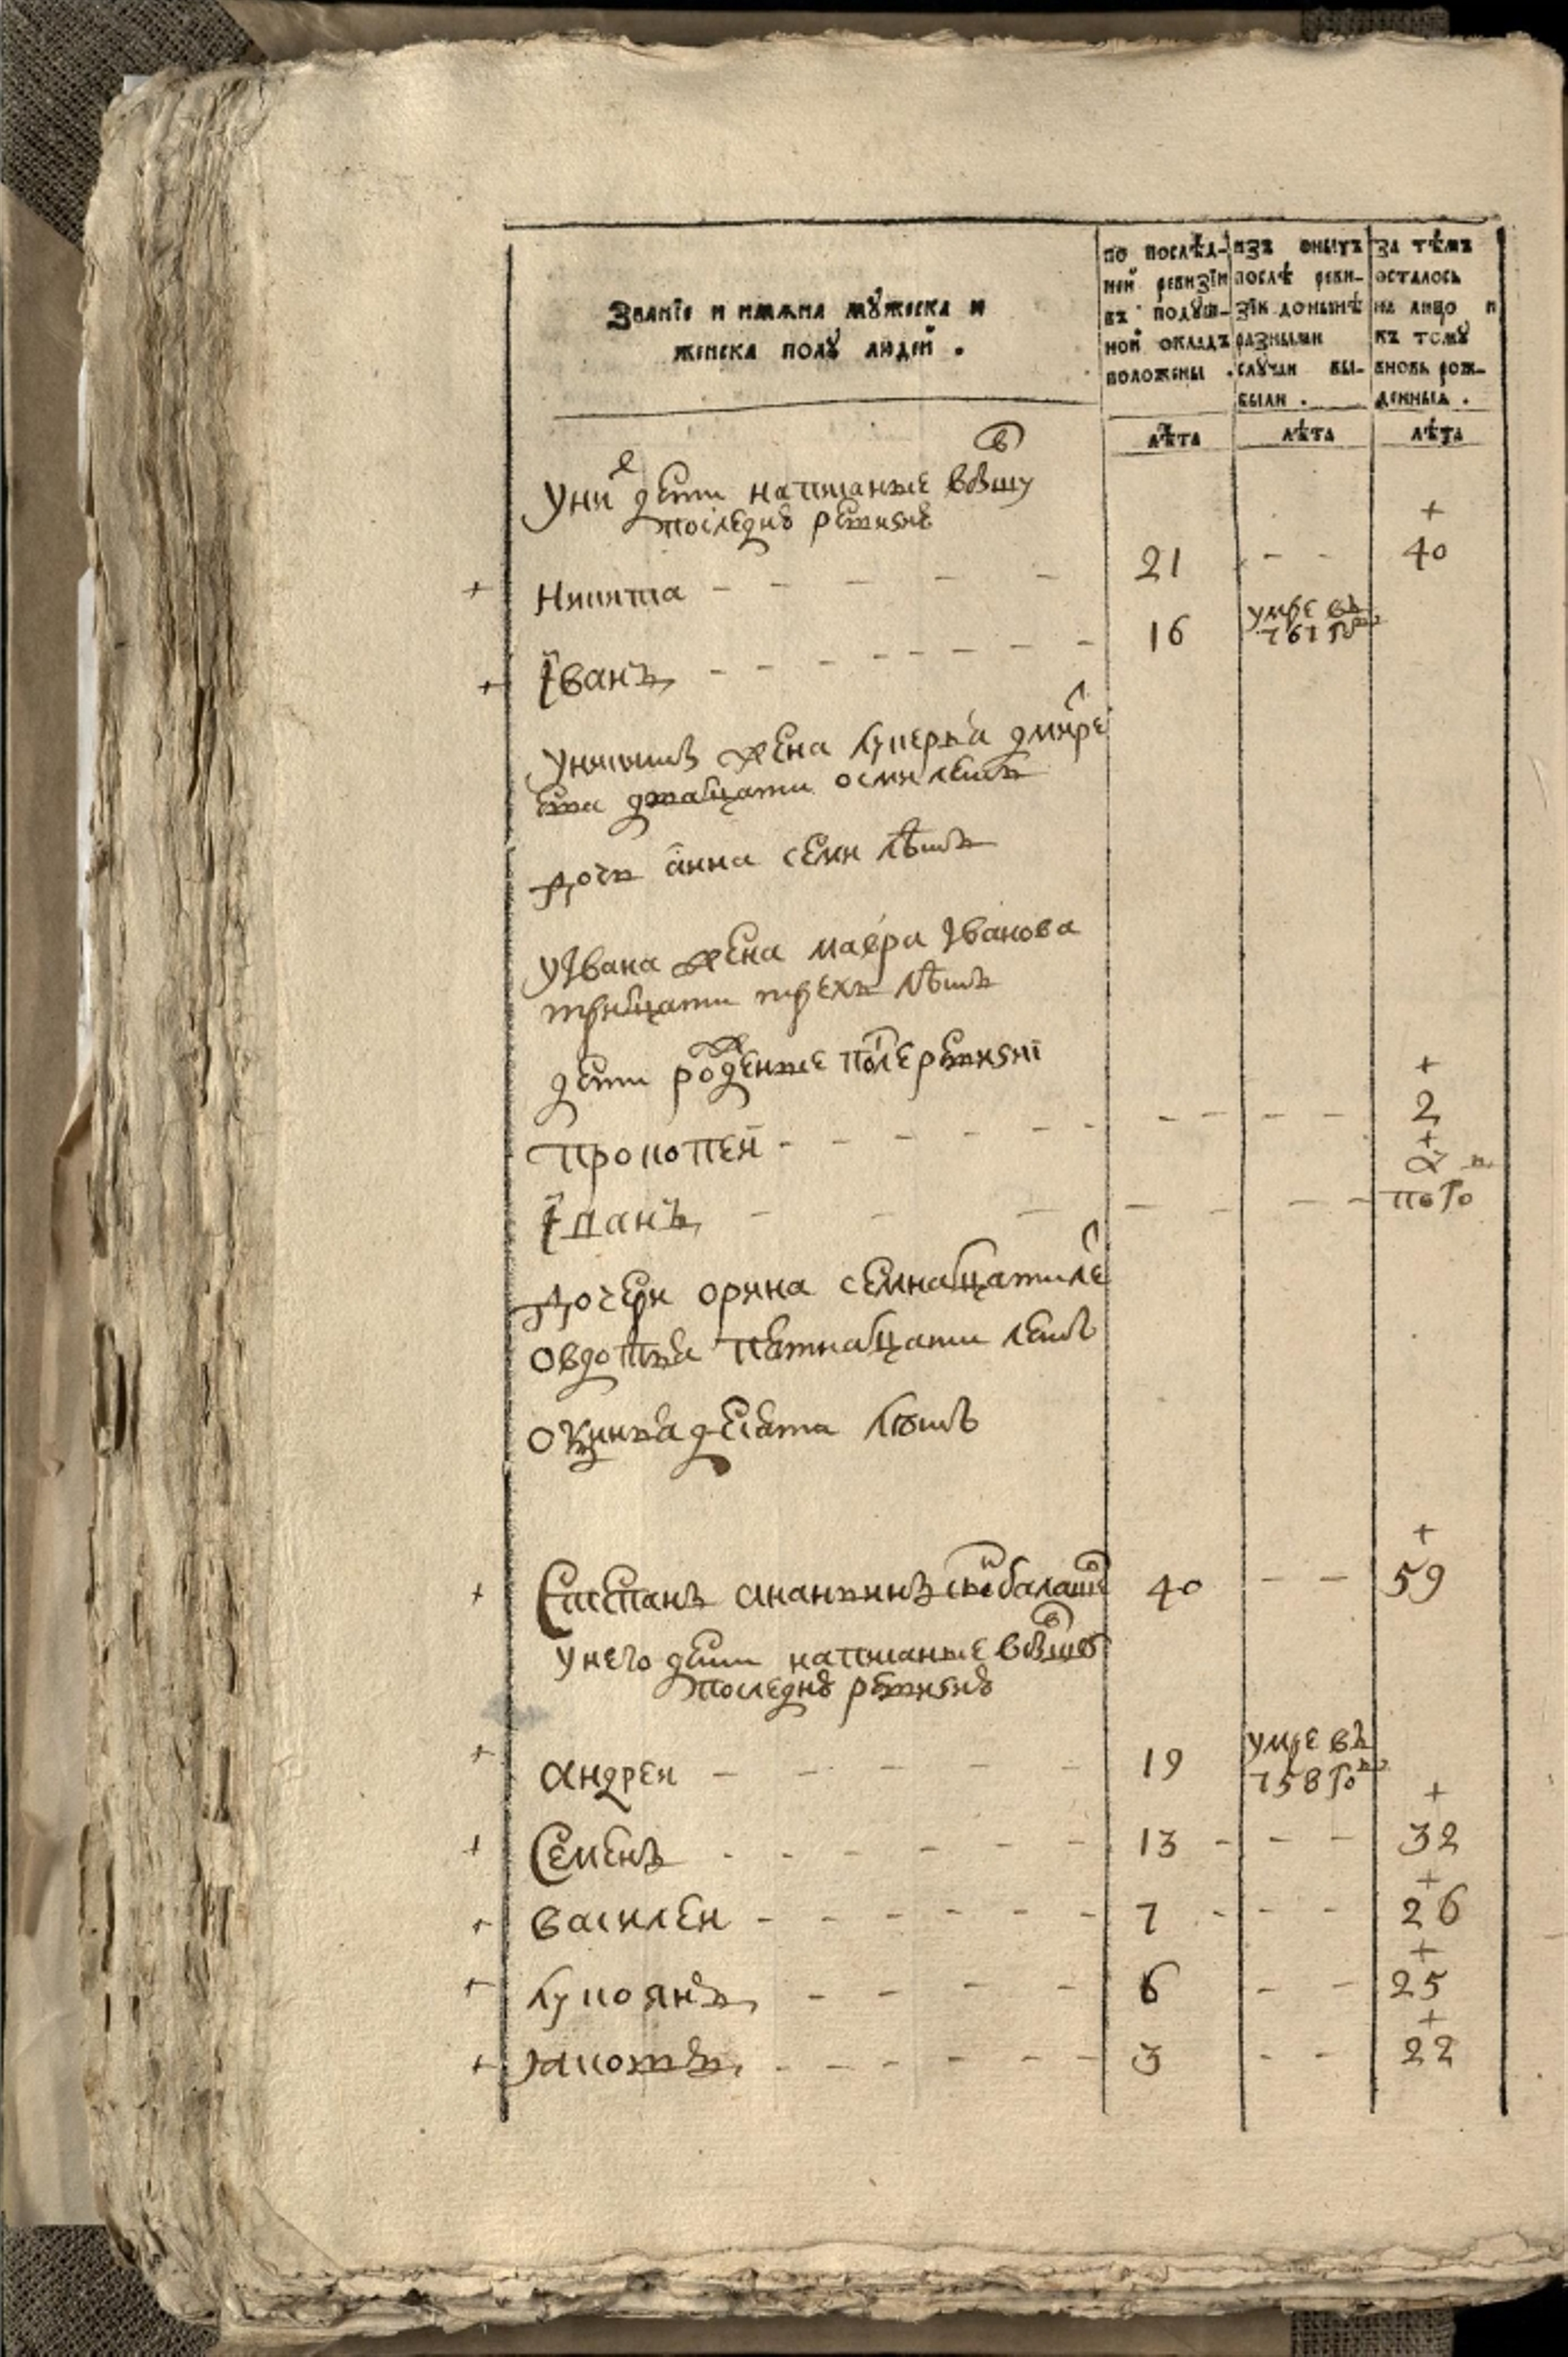 Званїе и имѧна мꙋжеска и
женска полꙋ людей .
по послѣд-
ней ревизїи
въ подꙋш-
ной окладъ
положены .
изъ оныхъ
послѣ реви-
зїи донынѣ
разными
случаи вы-
были .
за тѣмъ
осталось
на лицо и
къ томꙋ
вновь рож-
денныя .
лѣта лѣта лѣта
У них дети написаные в бывшу
последню ревизию
+
+ Никита - - - - - 21 - - 40
+ Iванъ - - - - - - - 16 умре въ
761 го
У Никиты жена Лукерья Дмитре
ева дватцати осми летъ
дочь анна семи лѣтъ
У Iвана жена мавра Iванова
тритцати трехъ лѣтъ
дети рожденые после ревизиi
+
Прокопей - - - - - - - - - 2
+
Iванъ - - - - - - -
полго
дочери орина семнатцати ле
овдотья пятнатцати летъ
десяти лѣтъ
+
+ Степанъ ананьинъ снъ балашо 40 - - 59
у него дети написаные в бывшую
последню ревизию
+ андреи - - - - - 19 умре въ
758 го
+
+ Семенъ - - - - - - 13 - - - 32
+
+ василеи - - - - - - 7 - - - 26
+
+ лукоянъ - - - - 6 - - 25
+
+ яковъ - - - - - - 3 - - 22